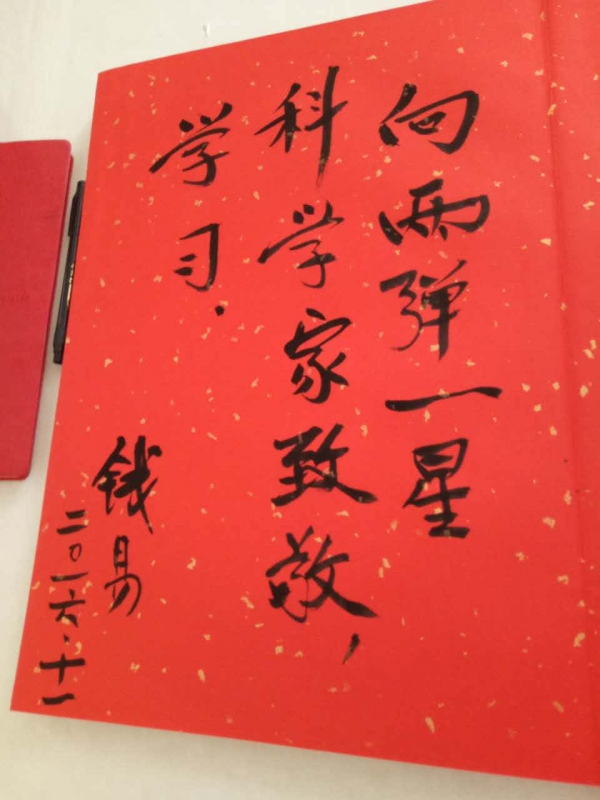 向两弹一星
科学家致敬，
学习.
钱易
二〇一六.十一